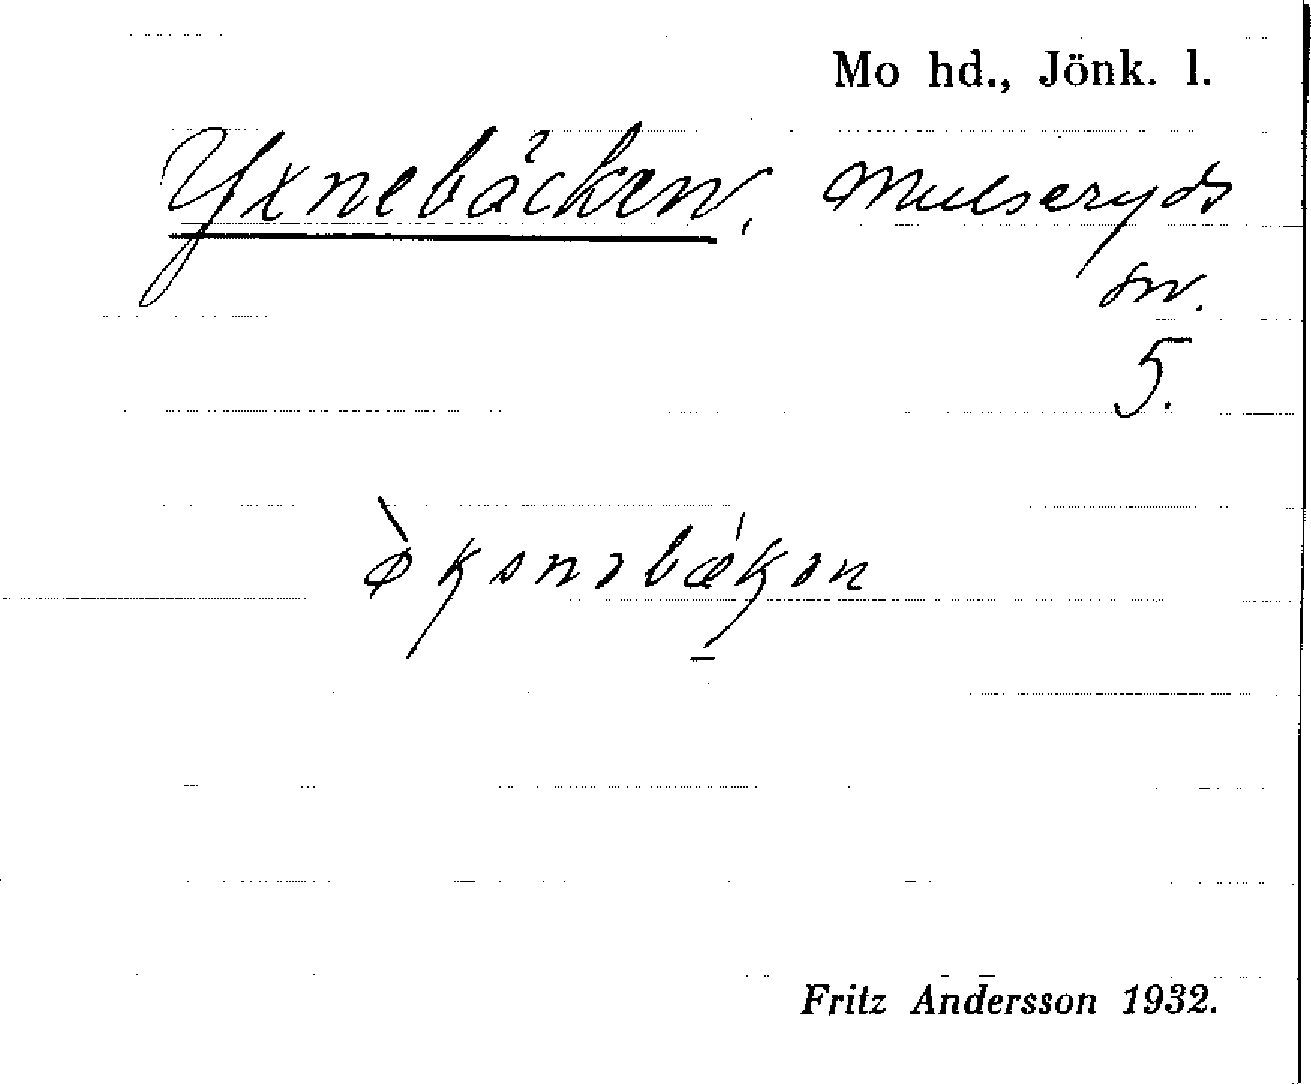 Mo hd., Jönk. l.
Yxnebäcken, Mulseryds
sn.
5.
ø̀ksnəbǽkən
Fritz Andersson 1932.